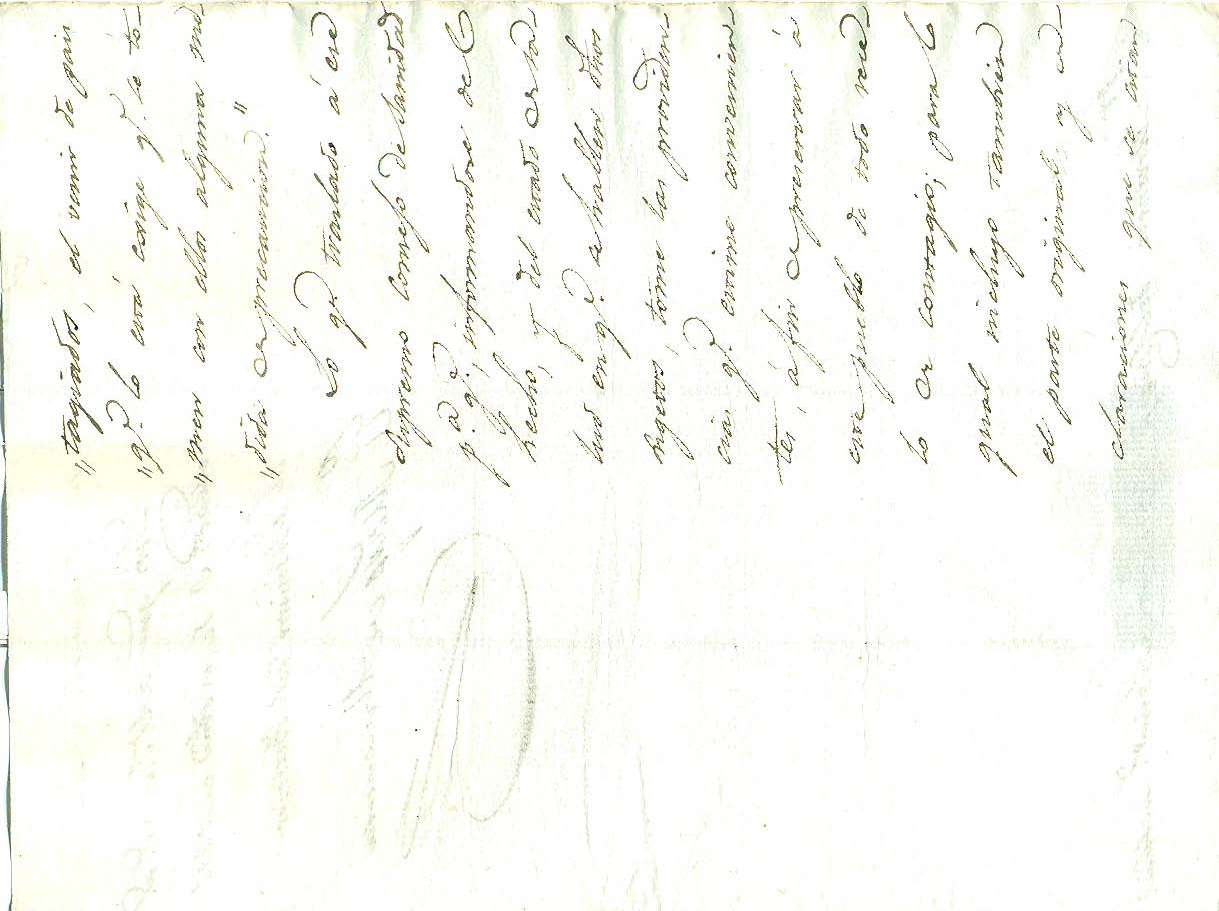 "tagiados, el venir de pais
"qᵉ. lo está exige qᵉ. se to-
"men con ellos alguna me
"dida de precaucion."
Lo qᵉ traslado á ese
Supremo Consejo de Sanidad
pᵃ. qᵉ, informandose de l
hecho, y del estado de sa-
lud en qᵉ. se hallen dhos
sugetos, tome las providen
cias qᵉ. estime convenien-
tes, á fin de preservar á
este pueblo de todo rece-
lo de contagio; para lo
qual incluyo tambien
el parte original, y de-
claraciones que se citan